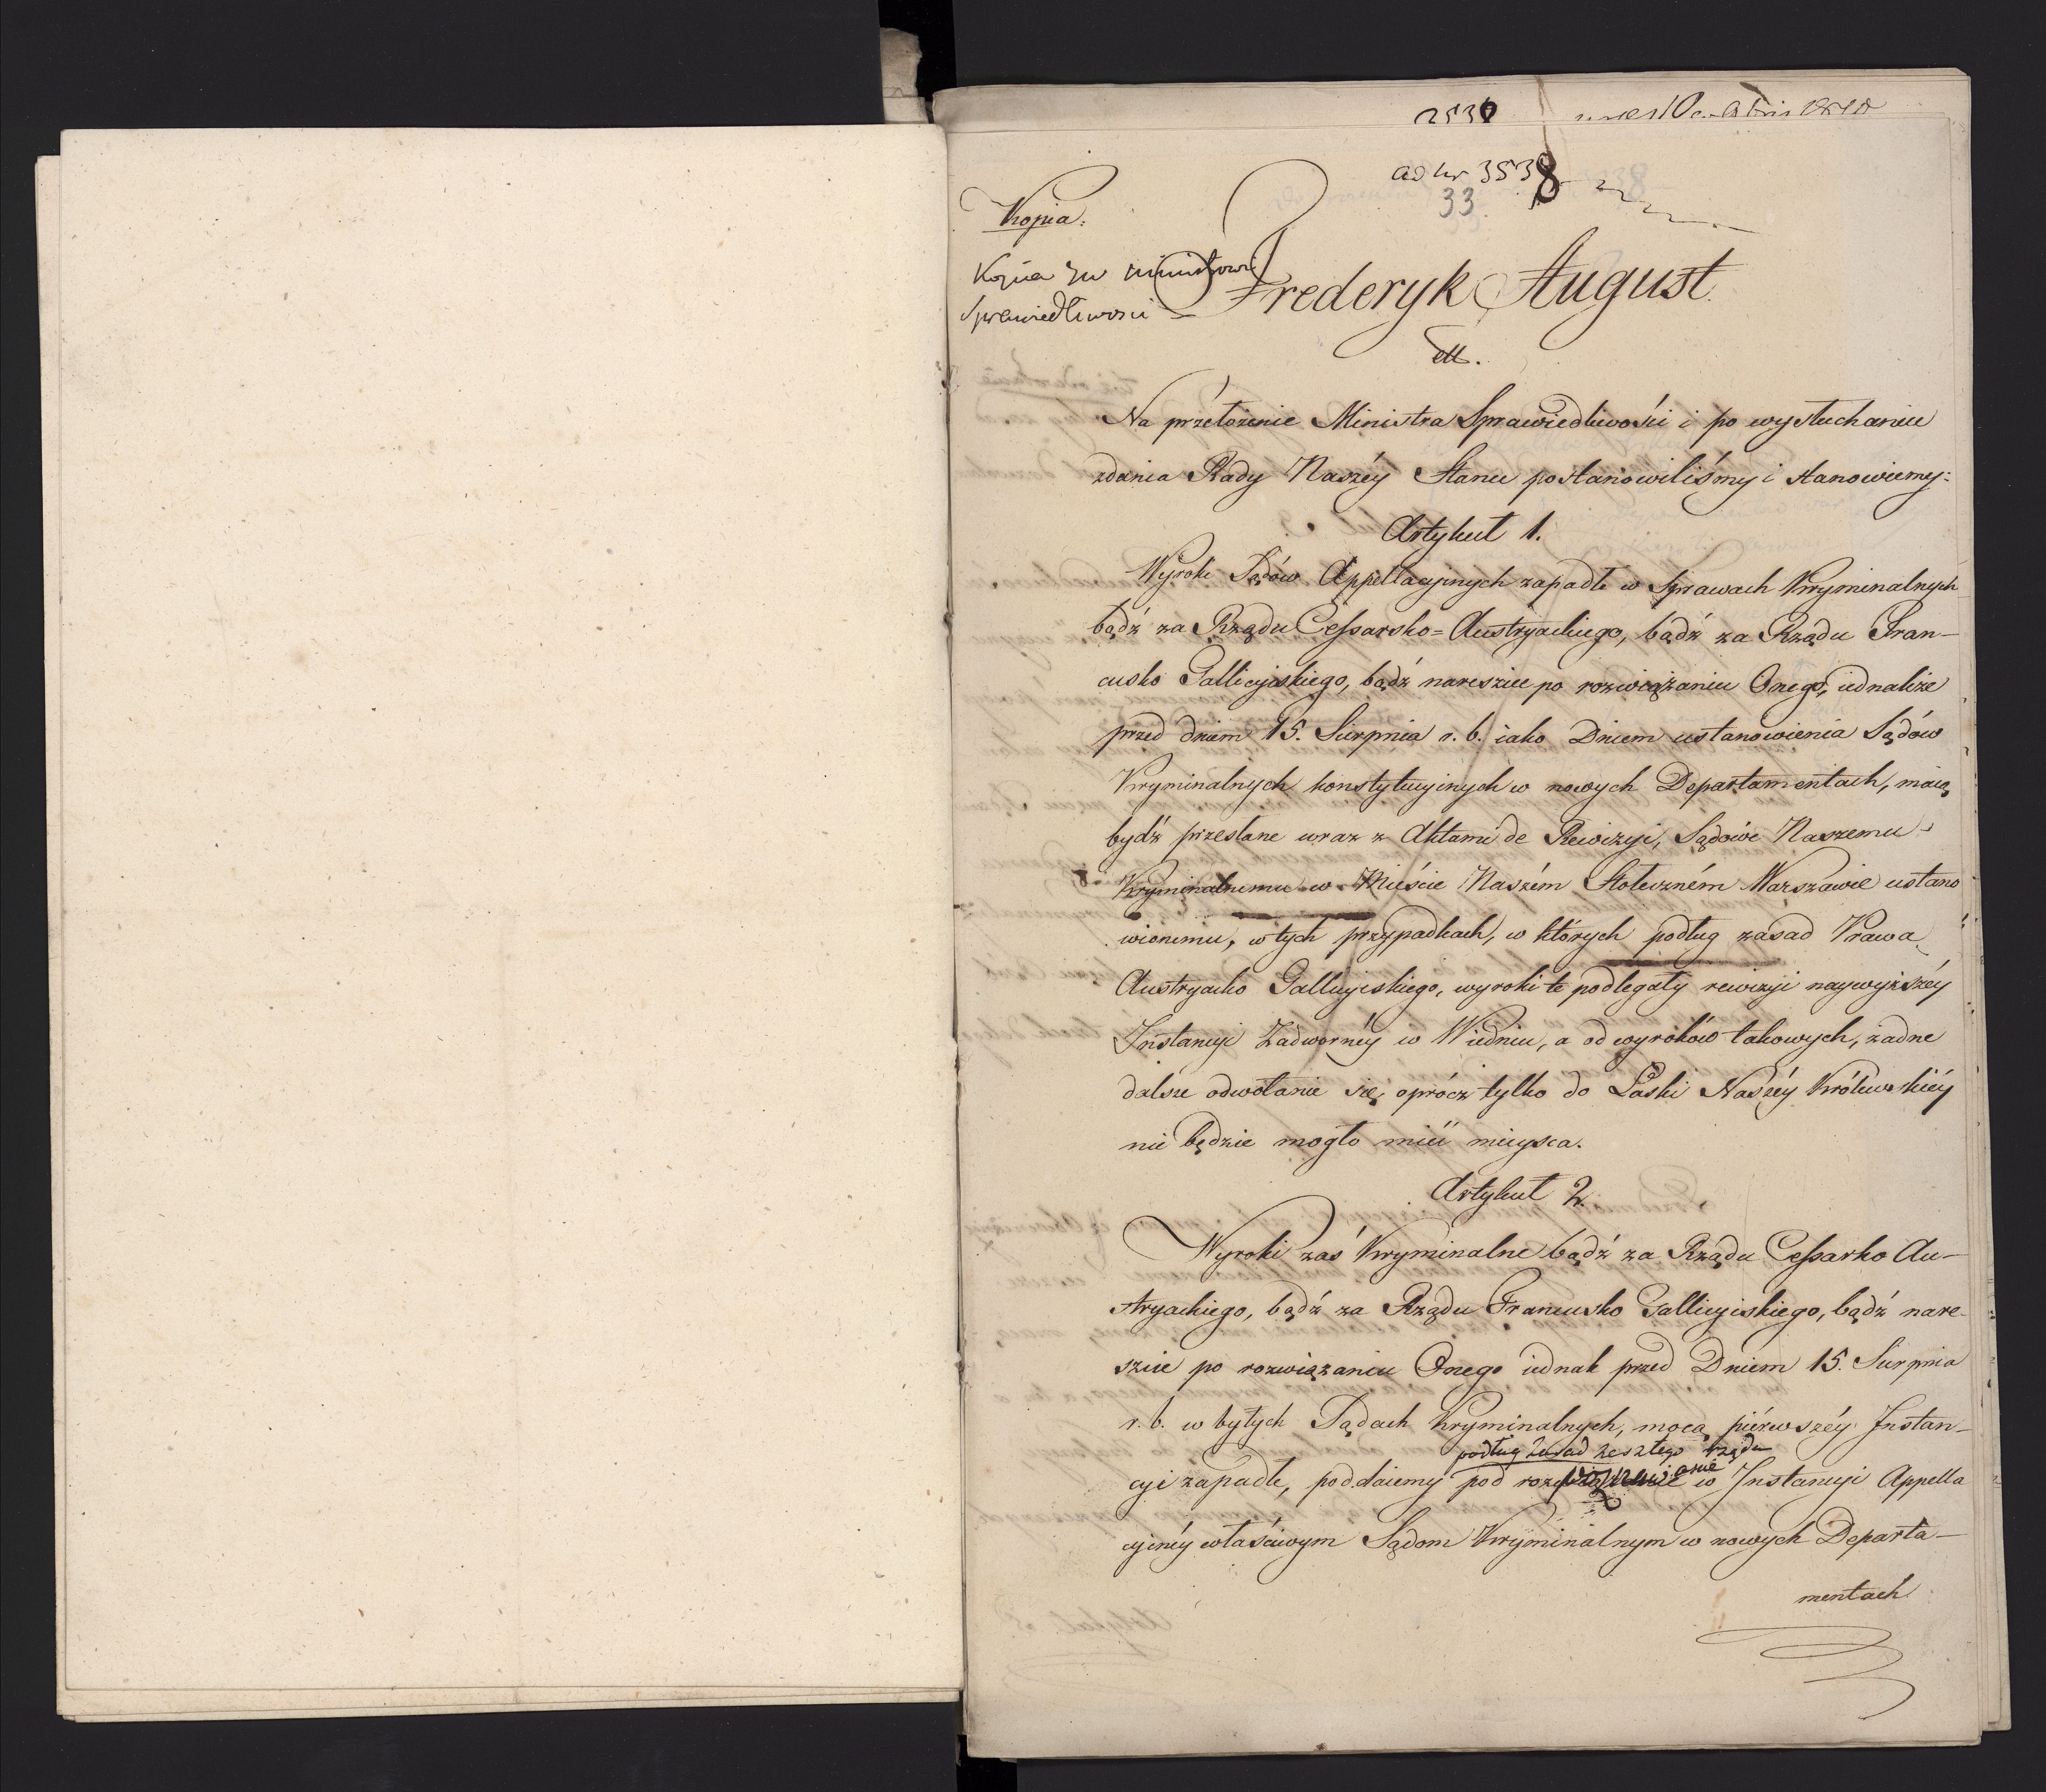 2536
ad Nr 3538
33.
Kopia.
Kopia Sprawiedliwości
Frederyk August
etc.
Na przełożenie Ministra Sprawiedliwości i po wysłuchaniu
zdania Rady Naszéy Stanu postanowiliśmy i stanowiemy:
Artykuł 1.
Wyroki Sądów Appellacyinych zapadłe w Sprawach Kryminalnych
bądź za Rządu Cessarsko=Austryackiego, bądź za Rządu Fran-
cusko Gallicyiskiego, bądź nareszcie po rozwiązaniu Onego, iednakże
przed dniem 15. Sierpnia r. b. iako Dniem ustanowienia Sądów
Kryminalnych konstytucyinych w nowych Departamentach, maią
bydź przesłane wraz z Aktami de Rewizyi, Sądowi Naszemu
Kryminalnemu w Mieście Naszém Stołeczném Warszawie ustano
wionemu, w tych przypadkach, w których podług zasad Prawa
Austryacko Gallicyiskiego, wyroki te podlegały rewizyi naywyższéy
Instancyi Zadwornéy w Wiedniu, a od wyroków takowych, żadne
dalsze odwołanie się oprócz tylko do Łaski Naszéy Królewskiéy
nie będzie mogło mieć mieysca.
Artykuł 2.
Wyroki zaś Kryminalne bądź za Rządu Cessarko Au-
stryackiego, bądź za Rządu Francusko Gallicyiskiego, bądź nare-
szcie po rozwiązaniu Onego iednak przed Dniem 15. Sierpnia
r. b. w byłych Sądach Kryminalnych, mocą piérwszéy Instan-
podług zasad zeszłego rządu
cyi zapadłe, poddaiemy pod w Instancyi Appella
cyinéy właściwym Sądom Kryminalnym w nowych Departa-
mentach